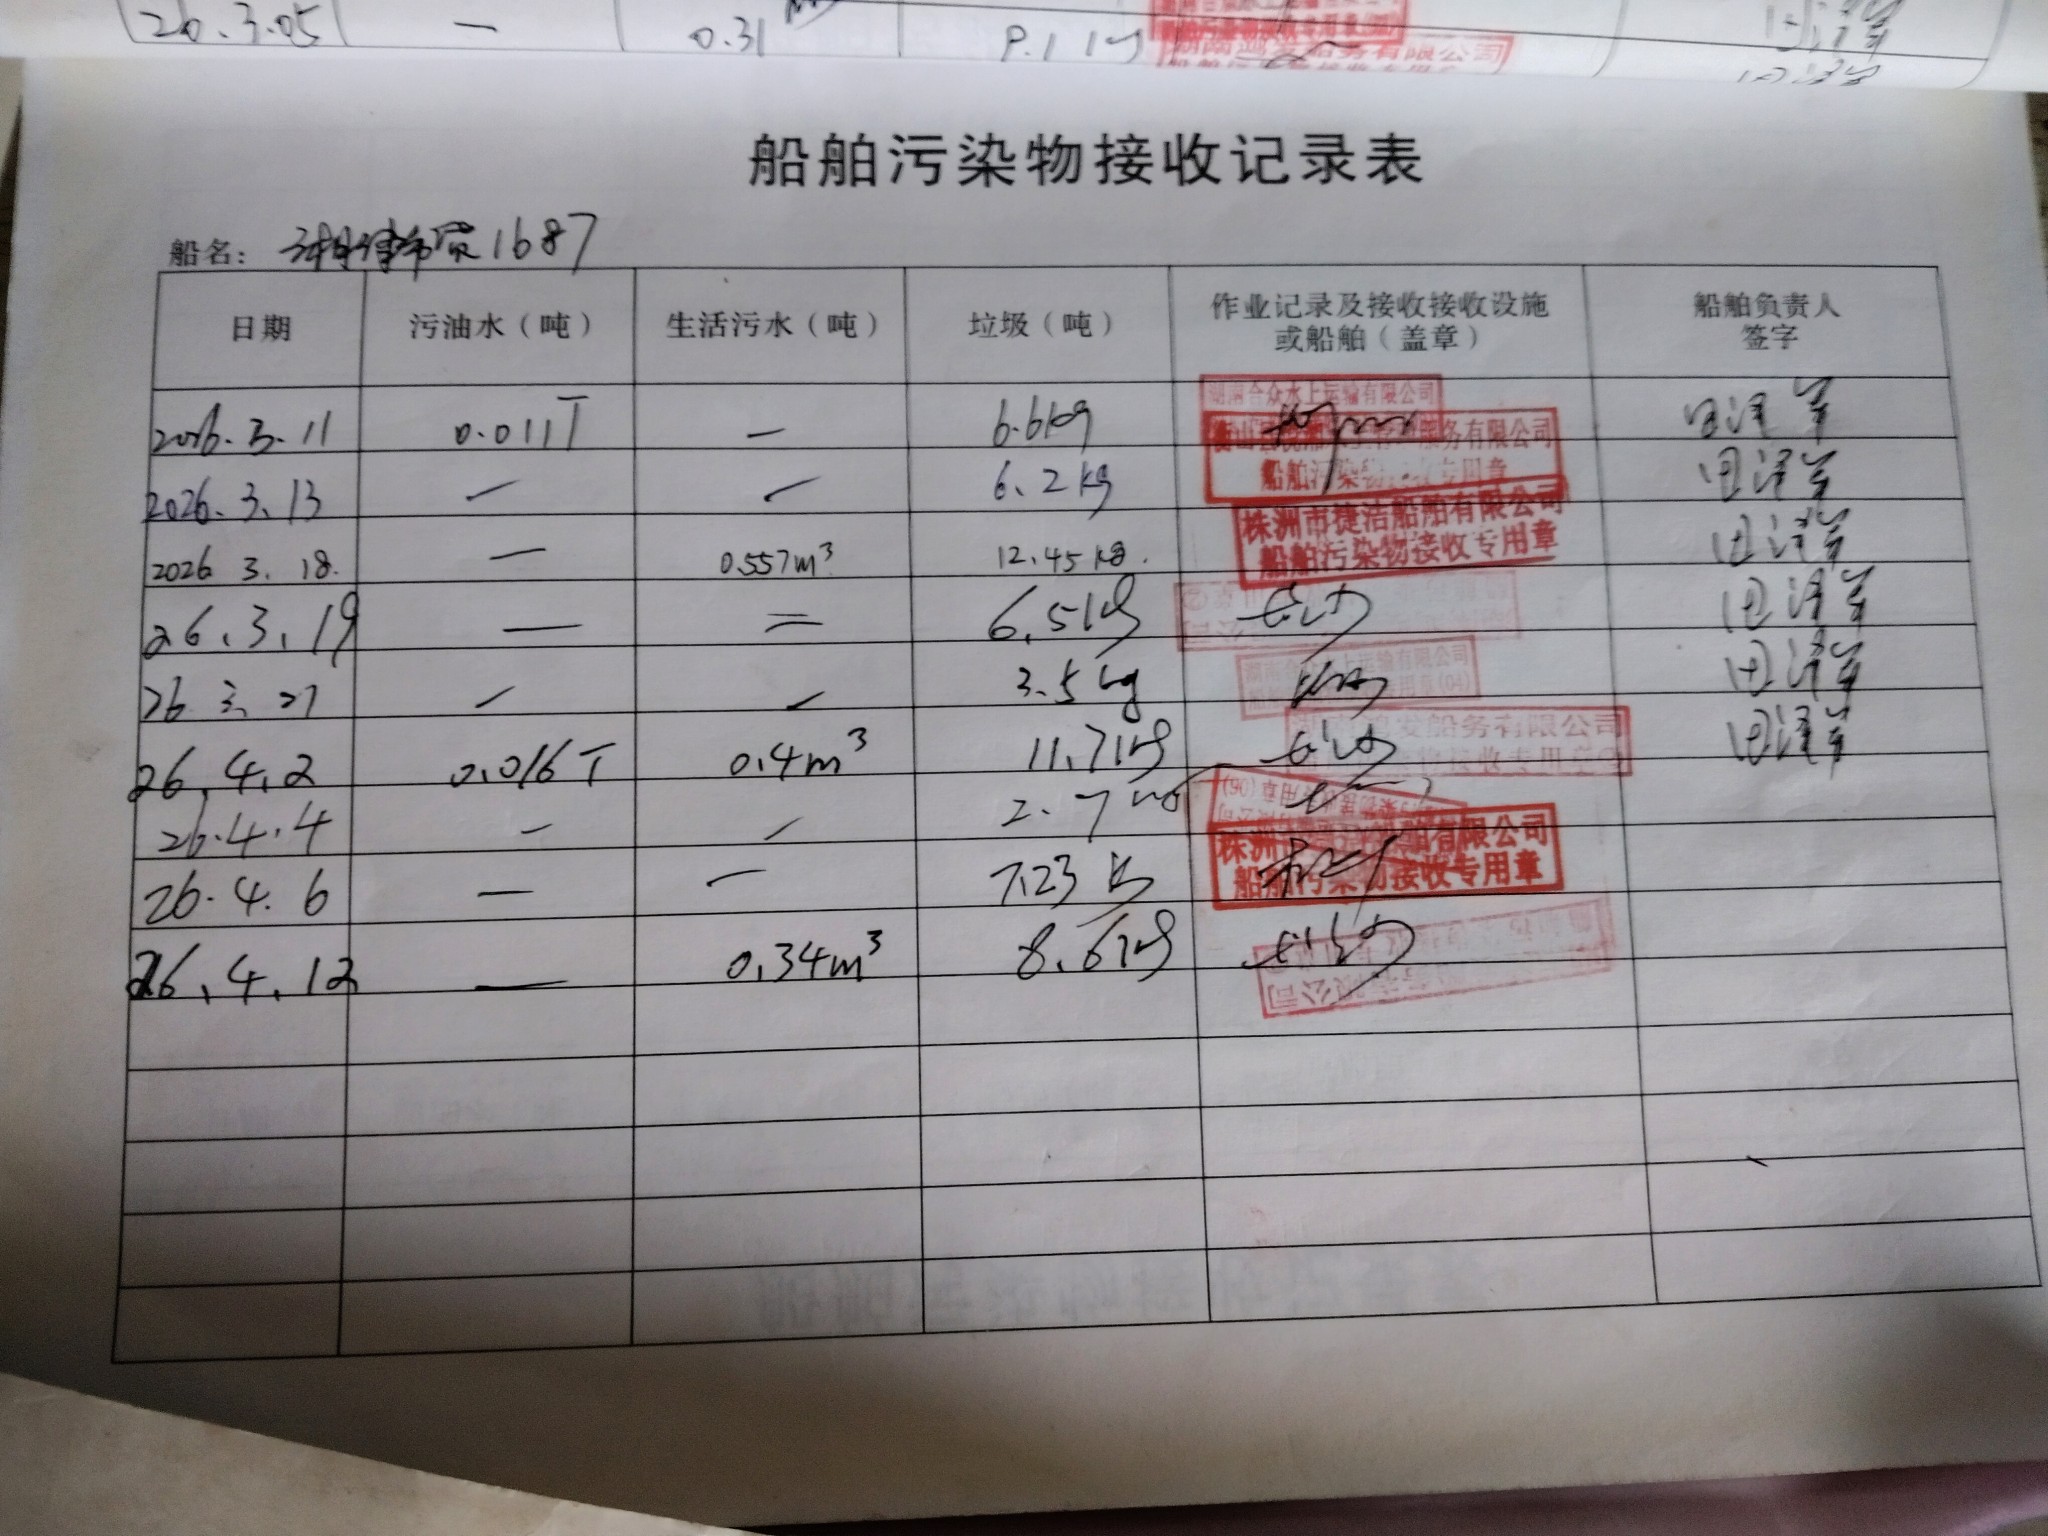 20.3.05 — 0.31 9.1 kg
有限公司
船舶污染物接收记录表
船名: 1687
日期 污油水（吨） 生活污水（吨） 垃圾（吨） 作业记录及接收接收设施或船舶（盖章） 船舶负责人签字
湖南合众水上运输有限公司
2026.3.11 0.011T — 6.6kg 服务有限公司 田泽军
2026.3.13 — — 6.2kg 船舶污染物接收专用章 田泽军
株洲市捷洁船舶有限公司
2026 3.18. — 0.557m³ 12.45kg. 船舶污染物接收专用章 田泽军
26.3.19 — = 6.5kg 田泽军
26.3.27 — — 3.5kg 上运输有限公司 专用章(04) 田泽军
26.4.2 0.016T 0.4m³ 11.7kg 发船务有限公司 接收专用章 田泽军
26.4.4 — — 2.7kg
株洲市 船舶有限公司
26.4.6 — — 7.23kg 船舶污染物接收专用章
26.4.12 — 0.34m³ 8.6kg